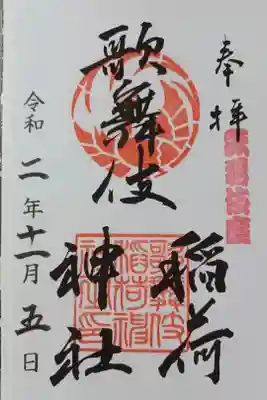 奉拝
歌舞伎座
歌舞伎
稲荷
神社
令和二年十一月五日